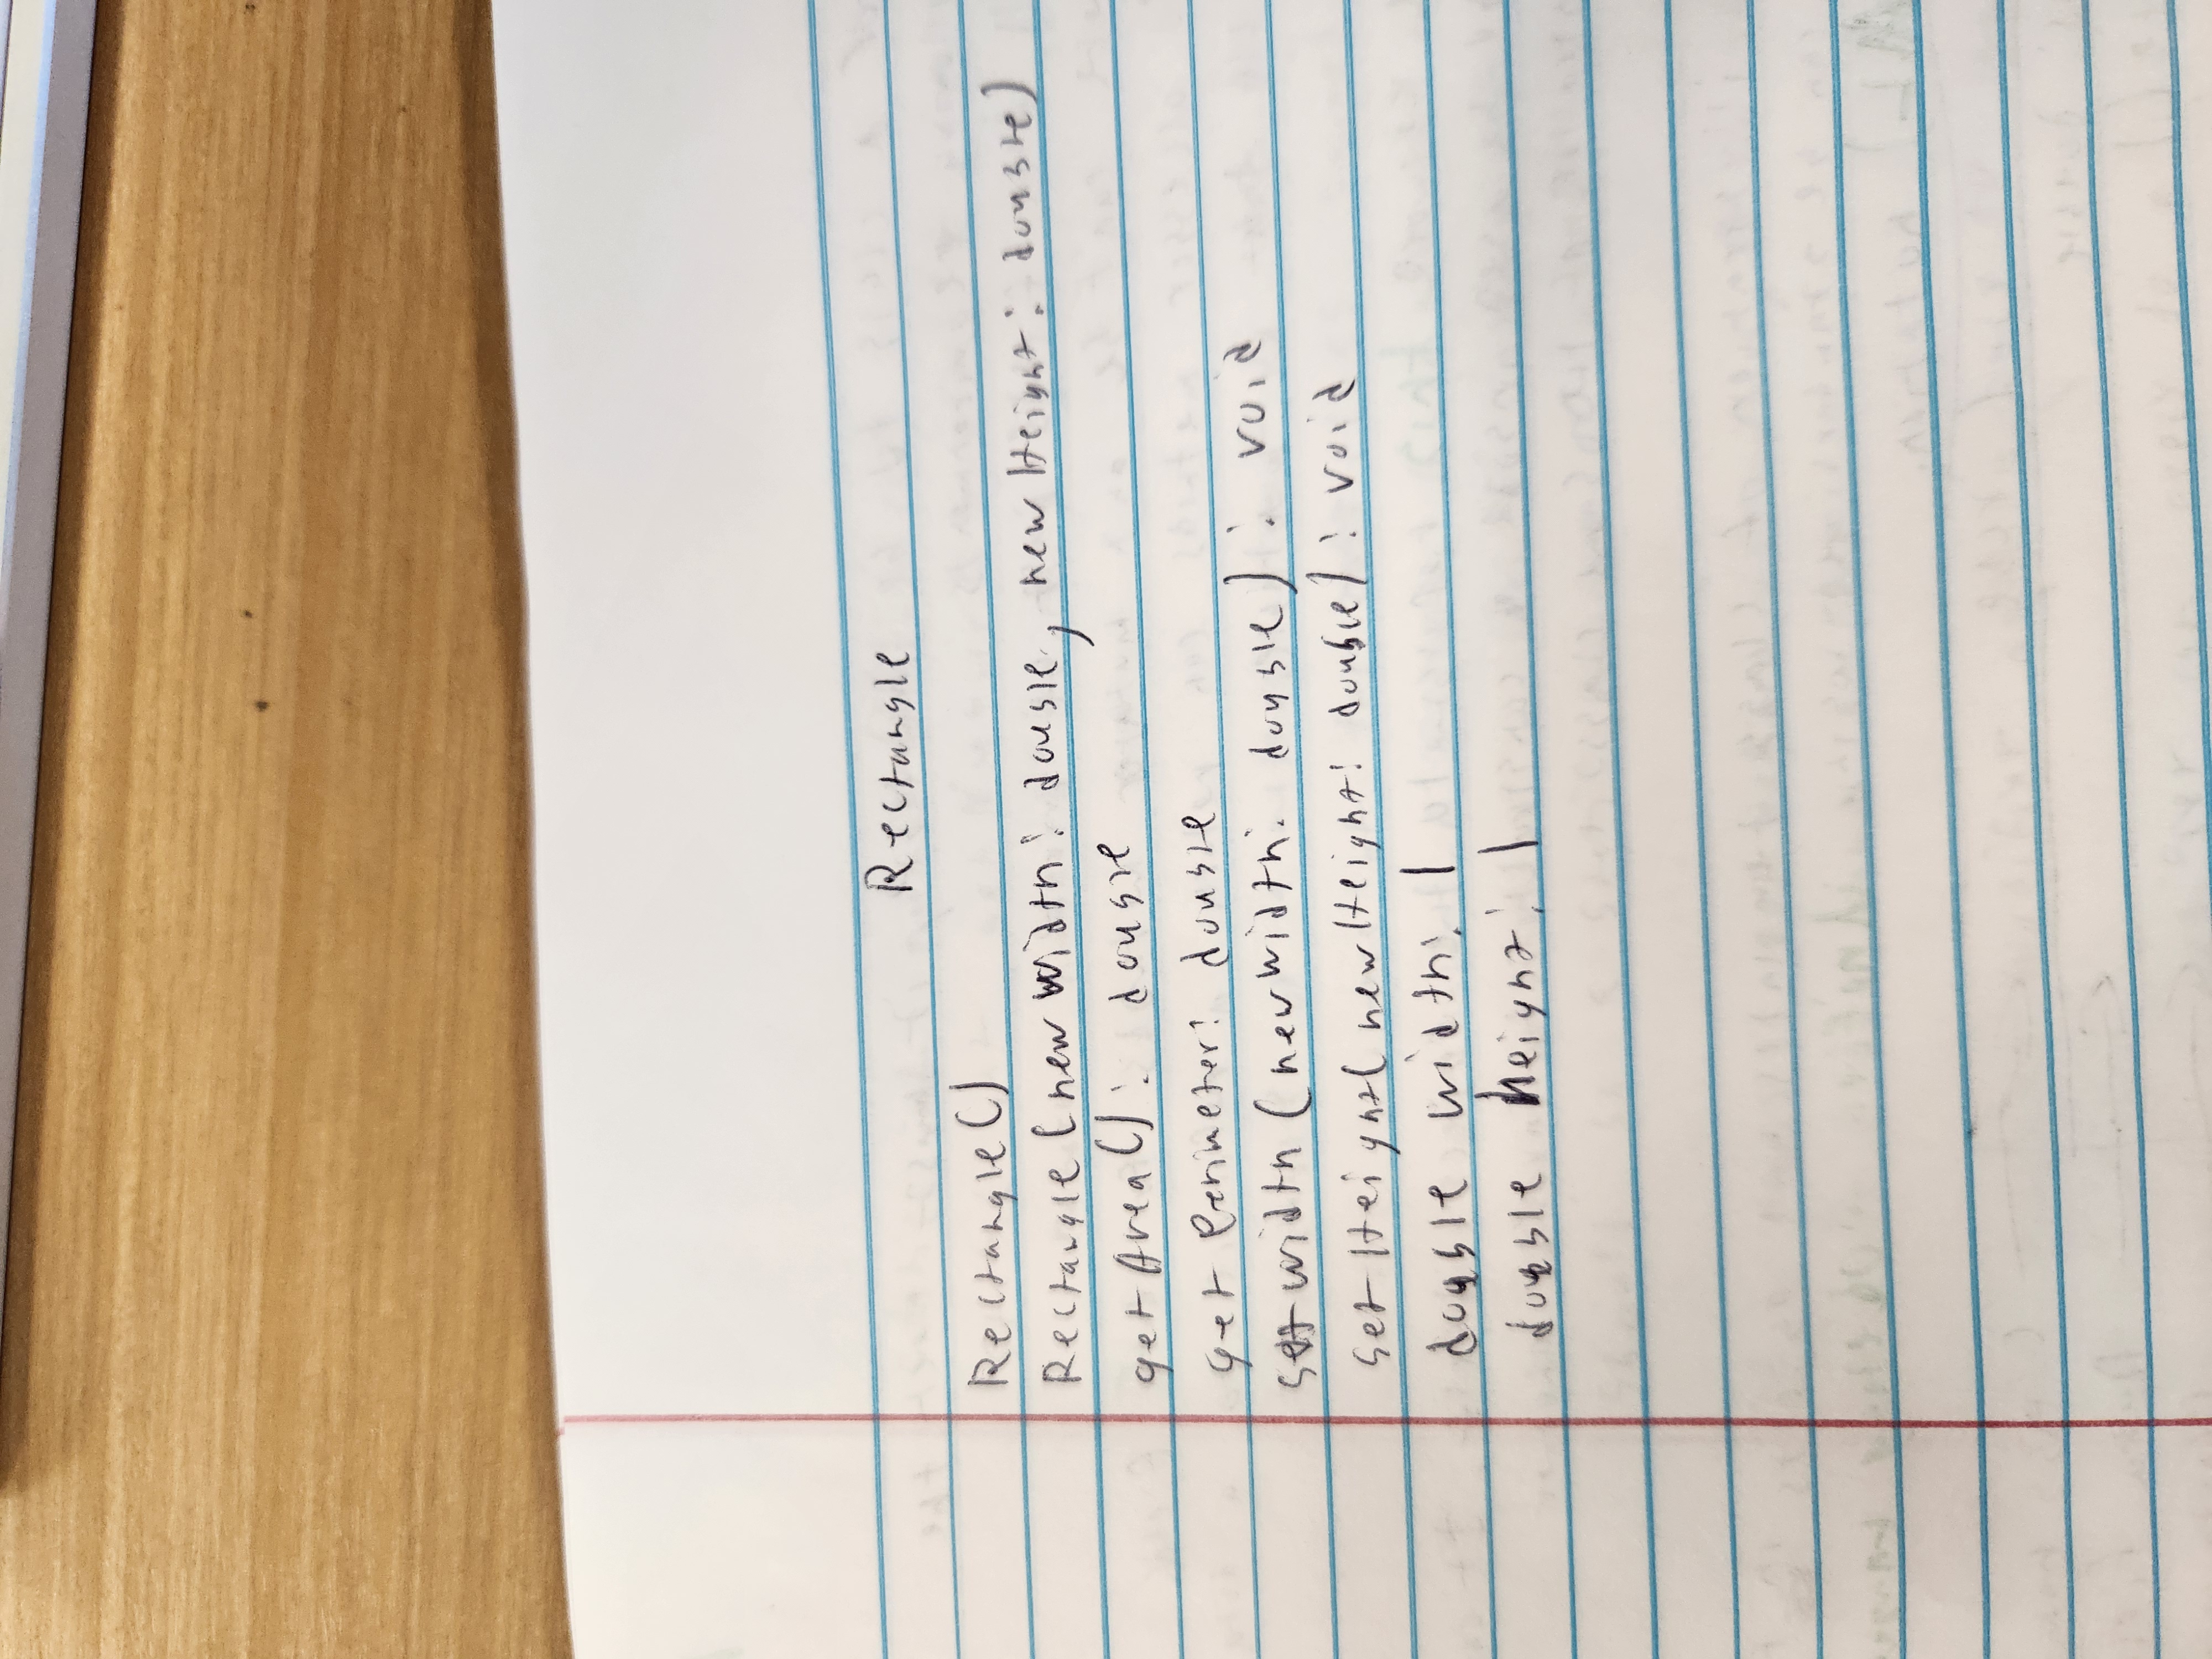 Rectangle
Rectangle()
Rectangle(newWidth: double, newHeight: double)
getArea(): double
getPerimeter: double
setwidth(newWidth: double): void
setHeight(newHeight: double): void
double width: 1
double height: 1